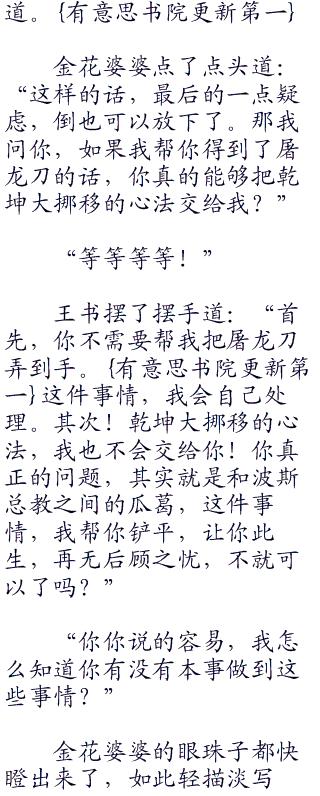 道。{有意思书院更新第一}
金花婆婆点了点头道：
“这样的话，最后的一点疑
虑，倒也可以放下了。那我
问你，如果我帮你得到了屠
龙刀的话，你真的能够把乾
坤大挪移的心法交给我？”
“等等等等！”
王书摆了摆手道：“首
先，你不需要帮我把屠龙刀
弄到手。{有意思书院更新第
一}这件事情，我会自己处
理。其次！乾坤大挪移的心
法，我也不会交给你！你真
正的问题，其实就是和波斯
总教之间的瓜葛，这件事
情，我帮你铲平，让你此
生，再无后顾之忧，不就可
以了吗？”
“你你说的容易，我怎
么知道你有没有本事做到这
些事情？”
金花婆婆的眼珠子都快
瞪出来了，如此轻描淡写